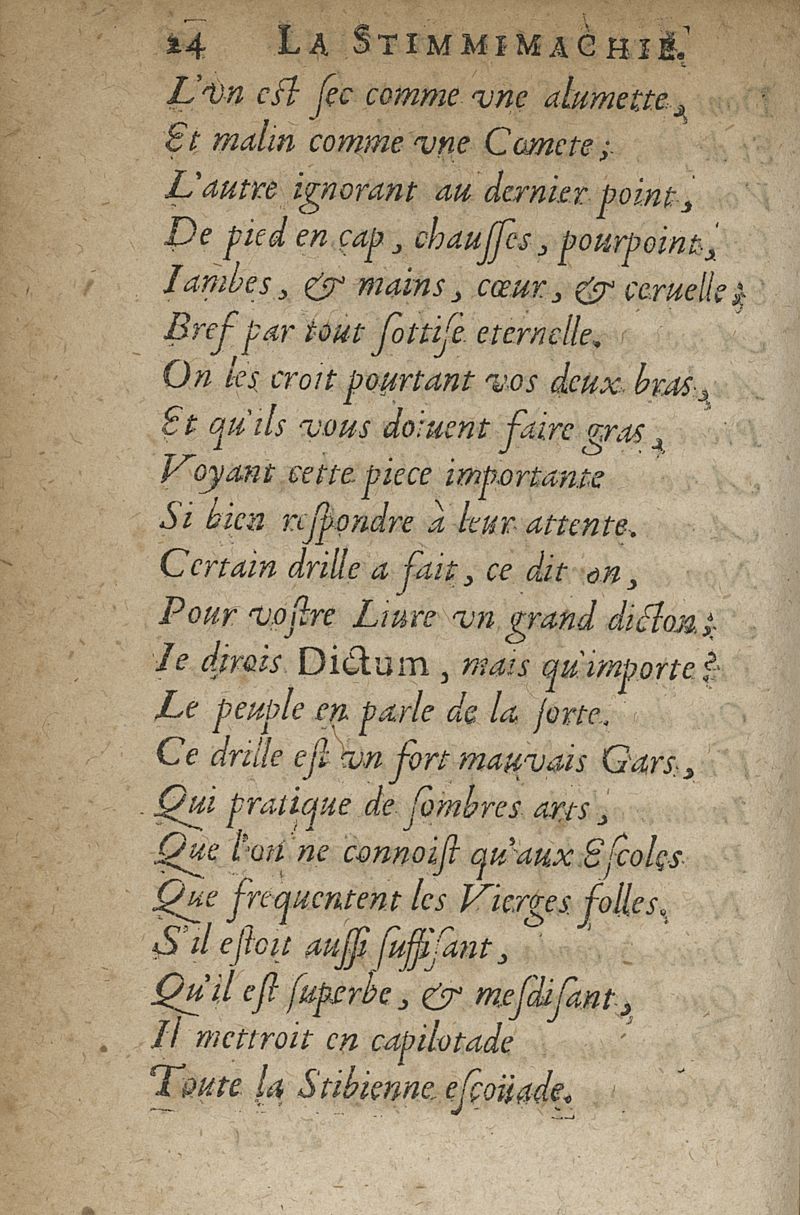 24 LA STIMMIMACHIE.
L'vn est ſec comme vne alumette,
Et malin comme vne Comete;
L'autre ignorant au dernier point,
De pied en cap, chauſſes, pourpoint,
Iambes, & mains, cœur, & ceruelle;
Bref par tout ſottiſe eternelle.
On les croit pourtant vos deux bras,
Et qu'ils vous doiuent faire gras,
Voyant cette piece importante
Si bien reſpondre à leur attente.
Certain drille a fait, ce dit on,
Pour voſtre Liure vn grand dicton;
Ie dirois Dictum, mais qu'importe?
Le peuple en parle de la ſorte.
Ce drille eſt vn fort mauvais Gars,
Qui pratique de ſombres arts,
Que l'on ne connoiſt qu'aux Eſcoles
Que frequentent les Vierges folles.
S'il eſtoit auſſi ſuffiſant,
Qu'il eſt ſuperbe, & meſdiſant,
Il mettroit en capilotade
Toute la Stibienne eſcoüade.